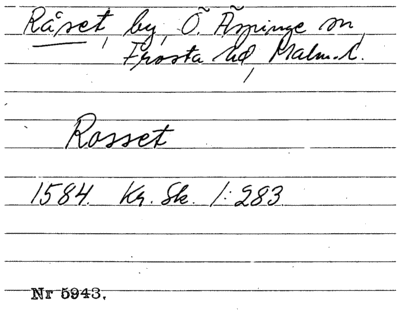 Råset, by, Ö. Äspinge sn,
Frosta hd, Malm. l.
Rosset
1584. Kr. Sk. 1:283
Nr 5943.